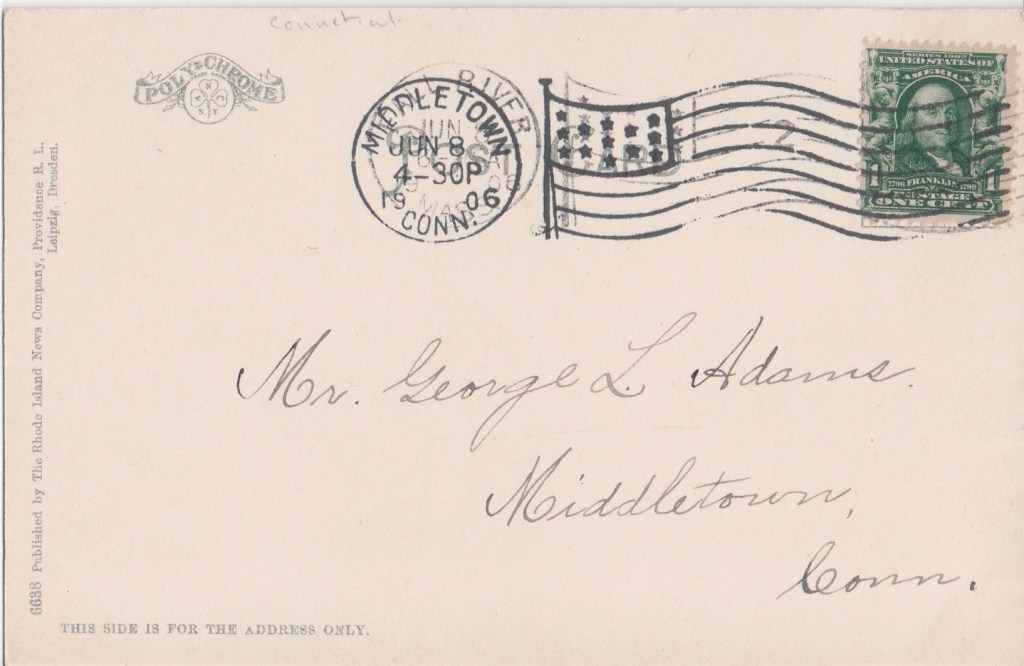 Connecticut
POLY-CHROME
FALL RIVER
JUN 8
19 06
MASS
MIDDLETOWN
JUN 8
4-30P
19 06
CONN.
Post Card
2
SERIES 1902
UNITED STATES OF
AMERICA
1 1
1706 FRANKLIN 1790
POSTAGE
ONE CENT
Mr. George L. Adams.
Middletown,
Conn.
6638 Published by The Rhode Island News Company, Providence R. I.
Leipzig, Dresden.
THIS SIDE IS FOR THE ADDRESS ONLY.